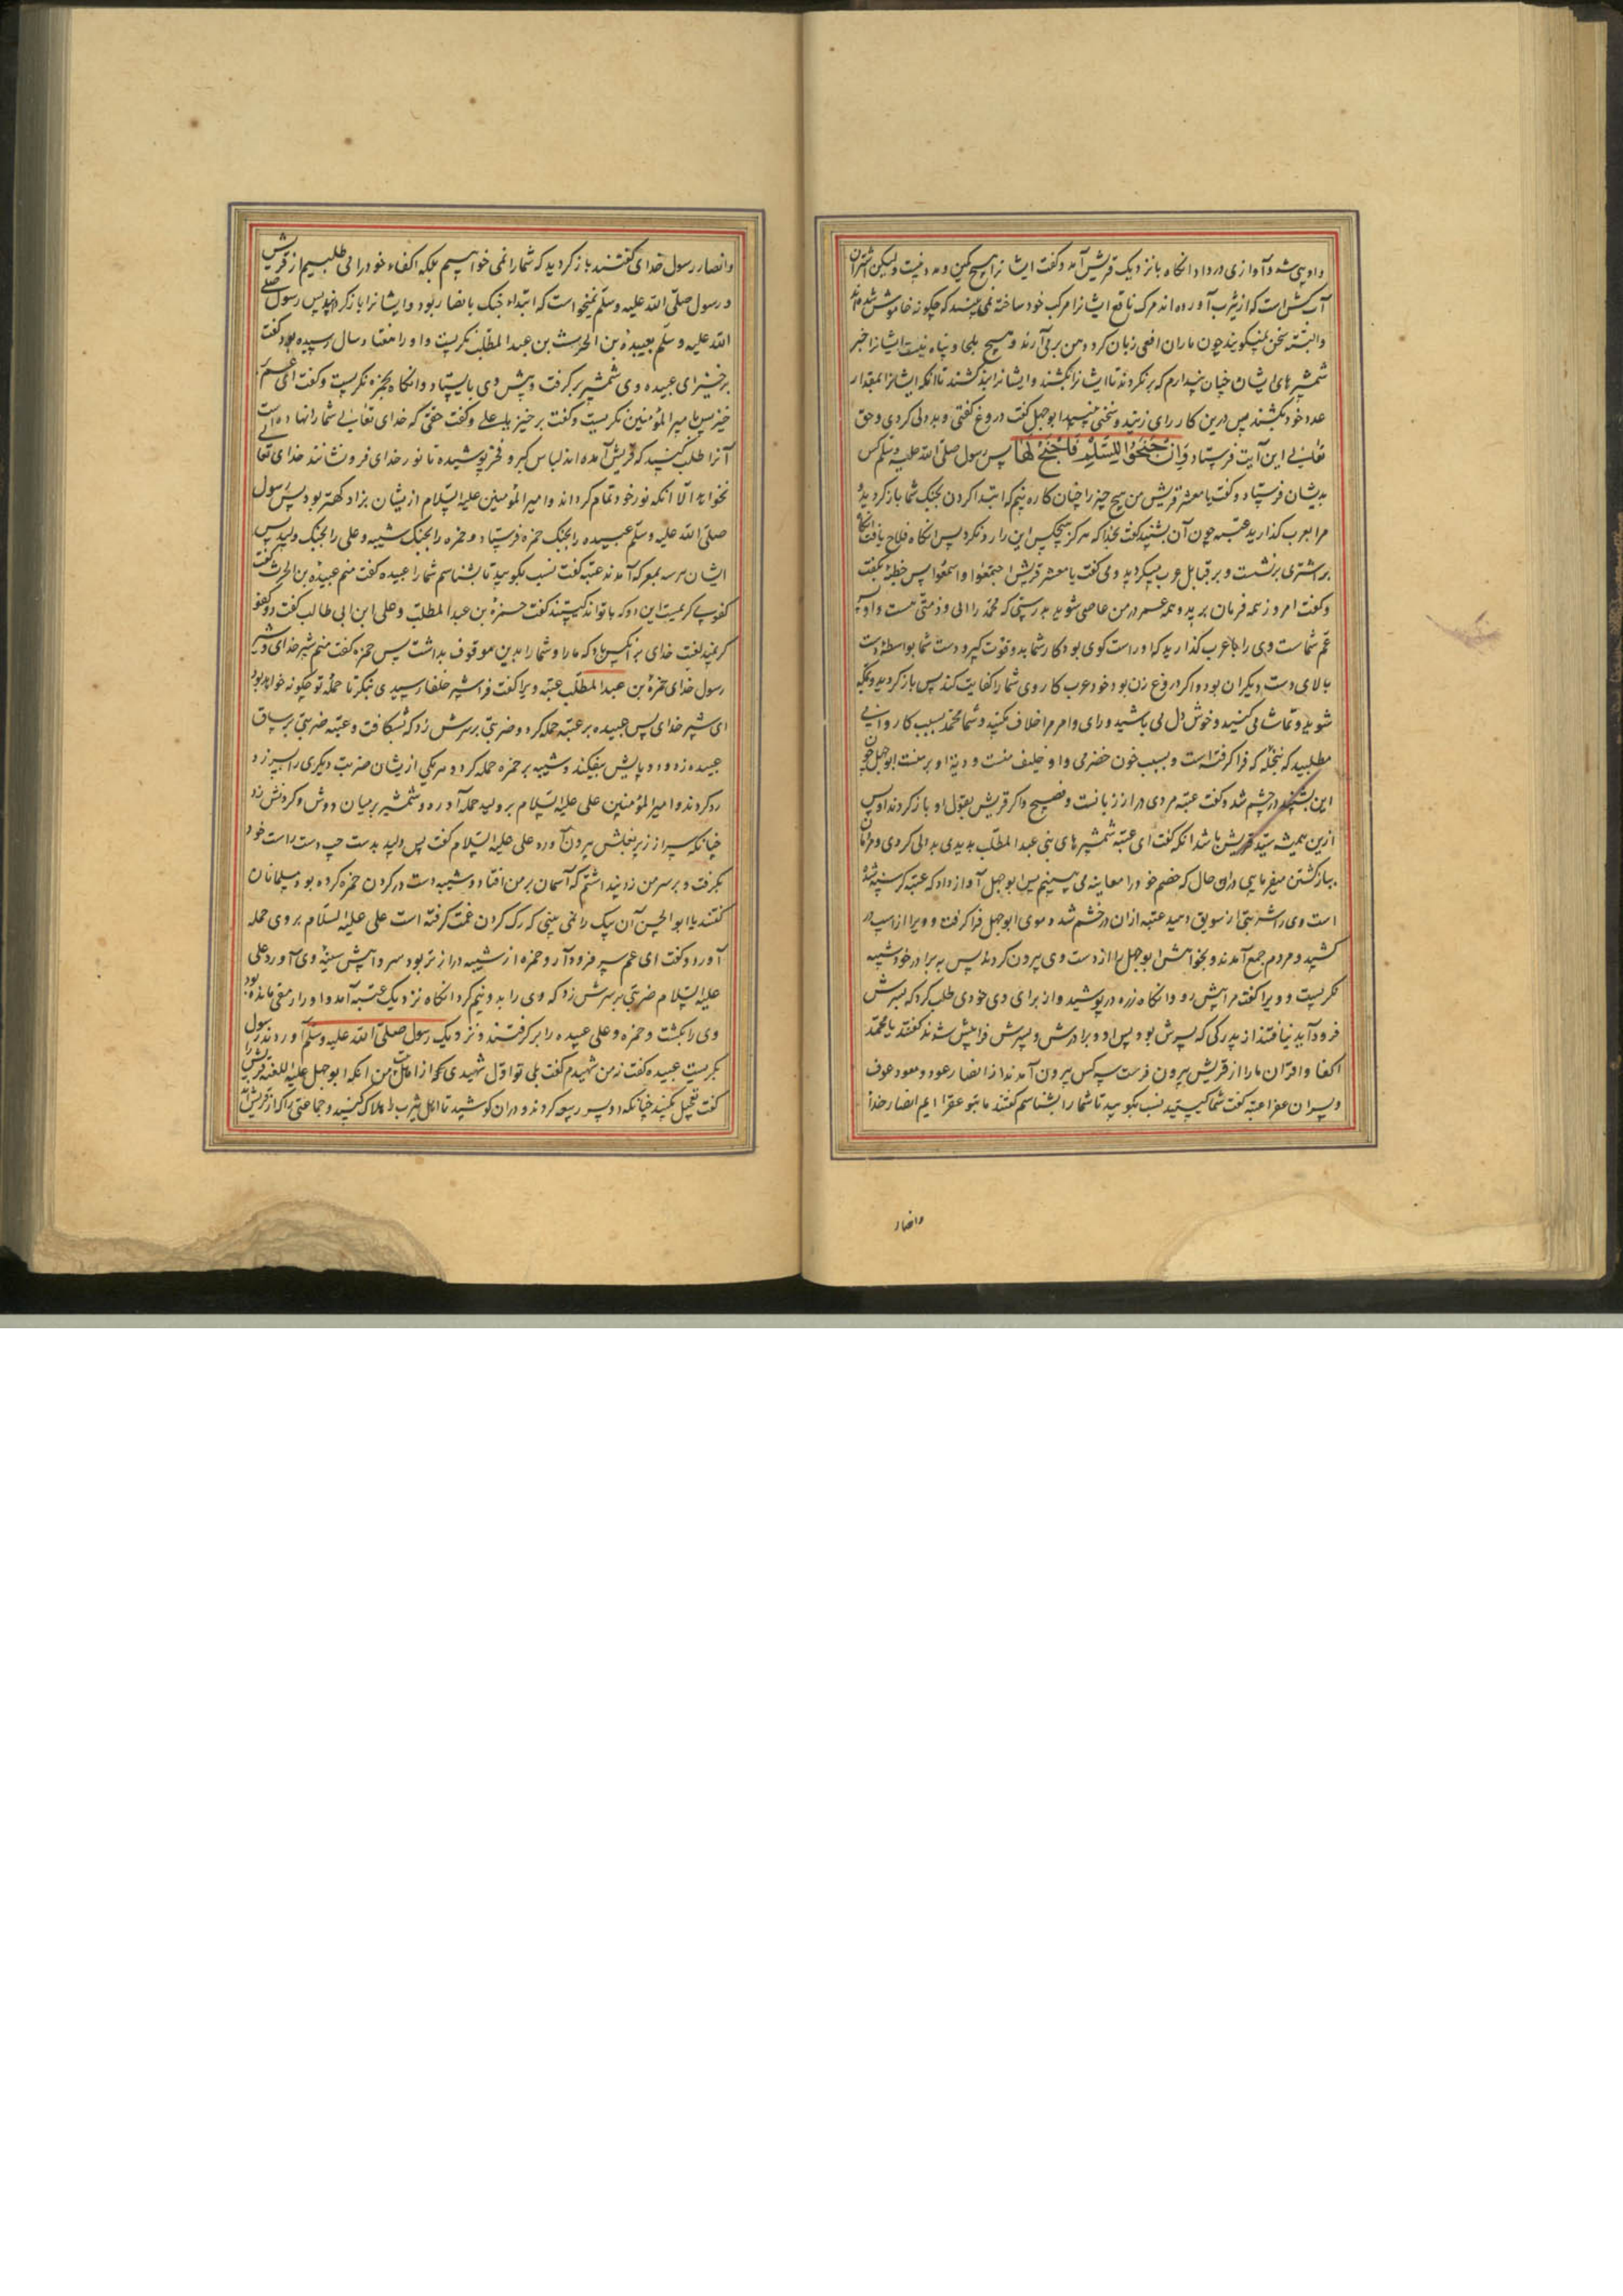 وادی شد و آوازی در داد انگاه بانزدیک قریش آمد و گفت ایشانرا هیچ کمین و مدد نیست و لیکن اشتران
آب کش است که از یثرب آورده‌اند مرگ ناقع ایشانرا مرکب خود ساخته نمی بینید که چگونه خاموش شده‌اند
و البته سخن نمیگویند چون ماران افعی زبان کرد دهن بر می آرند و هیچ ملجا و پناه نیست ایشانرا جز
شمشیرهای ایشان چنان پندارم که برنگردند تا ایشانرا نکشند و ایشانرا نکشند تا انکه ایشانرا بمقدار
عدد خود نکشند پس درین کار رای زنید و سختی مبینید ابوجهل گفت دروغ گفتی و بددلی کردی و حق
تعالی این آیت فرستاد وَاِنْ جَنَحُوا لِلسَّلْمِ فَاجْنَحْ لَهَا پس رسول صلی الله علیه وسلم کس
بدیشان فرستاد و گفت یا معشر قریش من هیچ چیز را چنان کاره نیم که ابتدا کردن بجنگ شما بازگردید و
مرا بعرب گذارید عتبه چون آن بشنید گفت بخدا که هرگز هیچکس این را رد نکرد پس انگاه فلاح یافت انگاه
بر اشتری نشست و بر قبایل عرب میگردید و می گفت یا معشر قریش اجتمعوا و اسمعوا پس خطبه بگفت
و گفت امروز همه فرمان برید و همه عمر در من عاصی شوید بدرستی که محمد را الی و ذمتی هست و او پسر
عم شماست وی را با عرب گذارید که او راست گوی بود کار شما بدو قوت گیرد و دست شما بواسطه دست
بالای دست دیگران بود و اگر دروغ زن بود خود عرب کار وی شما را کفایت کند پس بازگردید و بمکه
شوید و تماشا می کنید و خوش دل می باشید و رای و امر مرا خلاف مکنید و شما محمد بسبب کاروانی
مطلبید که بنخله که فرا گرفته است و بسبب خون حضرمی و او حلیف منست و دیه او بر منست ابوجهل چون
این بشنید در خشم شد و گفت عتبه مردی دراز زبانست و فصیح و اگر قریش بقول او باز گردند او پس
ازین همیشه سید قریش باشد انکه گفت ای عتبه شمشیرهای بنی عبد المطلب بدیدی بددلی کردی و مردمان
ببازگشتن میفرمایی در ان حال که خصم خود را معاینه می بینیم پس ابوجهل آواز داد که عتبه گرسنه شده
است وی را شربتی از سویق دهید عتبه ازان در خشم شد و موی ابوجهل فرا گرفت و ویرا از اسب در
کشید و مردم جمع آمدند و بخواهش ابوجهل را از دست وی بیرون کردند پس به برادر خود شیبه
نگریست و ویرا گفت مرا پیش رو و انگاه زره در پوشید و از برای وی خودی طلب کرد که بسرش
فرود آید نیافتند از بزرگی که سرش بود پس او و برادرش و پسرش فرا پیش شدند گفتند یا محمد
اکفا و اقران ما را از قریش بیرون فرست سه کس بیرون آمدند از انصار عوذ و معوذ و عوف
و پسران عفرا عتبه گفت شما کیستید نسب بگویید تا شما را بشناسم گفتند ما بنو عفرا ایم انصار خدا
وانصار
وانصار رسول خدای گفتند باز گردید که شما را نمی خواهیم بلکه اکفاء خود را می طلبیم از قریش
و رسول صلی الله علیه وسلم نمیخواست که ابتداء جنگ با انصار بود و ایشانرا باز گردانید پس رسول صلی
الله علیه وسلم بعبیدة بن الحرث بن عبد المطلب نگریست و او را هفتاد سال رسیده بود گفت
برخیز ای عبیده وی شمشیر بر گرفت و پیش وی بایستاد و انگاه بحمزه نگریست و گفت ای عم
خیز پس با میر المؤمنین نگریست و گفت برخیز یا علی و گفت حقی که خدای تعالی شما را نهاده است
آنرا طلب کنید که قریش آمده اند لباس کبر و فخر پوشیده تا نور خدای فرو نشانند خدای تعالی
نخواهد الا انکه نور خود تمام گرداند و امیر المؤمنین علیه السلام ازیشان بزاد کهتر بود پس رسول
صلی الله علیه وسلم عبیده را بجنگ حمزه فرستاد و حمزه را بجنگ شیبه و علی را بجنگ ولید پس
ایشان هر سه بمعرکه آمدند عتبه گفت نسب بگویید تا بشناسم شما را عبیده گفت منم عبیدة بن الحرث گفت
کفوی کریمست این دو که باتو اند کیستند گفت حمزة بن عبد المطلب و علی ابن ابی طالب گفت دو کفو
کریمند لعنت خدای بر آنکس باد که ما را و شما را بدین موقوف بداشت پس حمزه گفت منم شیر خدای و شیر
رسول خدای حمزة بن عبد المطلب عتبه ویرا گفت فرا شیر حلفا رسیدی بنگر تا حمله تو چگونه خواهد بود
ای شیر خدای پس عبیده بر عتبه حمله کرد و ضربتی بر سرش زد که بشکافت و عتبه ضربتی بر ساق
عبیده زد و هر دو پایش بیفکند و شیبه بر حمزه حمله کرد و هر یکی ازیشان ضربت دیگری را سپر زد و
رد کردند و امیر المؤمنین علی علیه السلام بر ولید حمله آورد و شمشیر بر میان دوش و گردنش زد
چنانکه سر از زیر بغلش بیرون آورد علی علیه السلام گفت پس ولید بدست چپ دست راست خود
بگرفت و بر سر من زد پنداشتم که آسمان بر من افتاد و شیبه دست در گردن حمزه کرده بود مسلمانان
گفتند یا ابو الحسن آن سگ را نمی بینی که رگ گردن عمت گرفته است علی علیه السلام بر وی حمله
آورد و گفت ای عم سر فرود آر و حمزه از شیبه درازتر بود سر در پیش سینه وی آورد علی
علیه السلام ضربتی بر سرش زد که وی را بدو نیم کرد انگاه نزدیک عتبه آمد و او را رمقی مانده بود
وی را بکشت و حمزه و علی عبیده را بر گرفتند و نزدیک رسول صلی الله علیه وسلم آوردند رسول
بگریست عبیده گفت نه من شهیدم گفت بلی تو اول شهیدی که از اهل بیت من انکه ابوجهل علیه اللعنه قریش را
گفت تعجیل مکنید چنانکه دو پسر ربیعه کردند و دران کوشید تا اهل یثرب را هلاک کنید و جماعتی را که از قریش اند